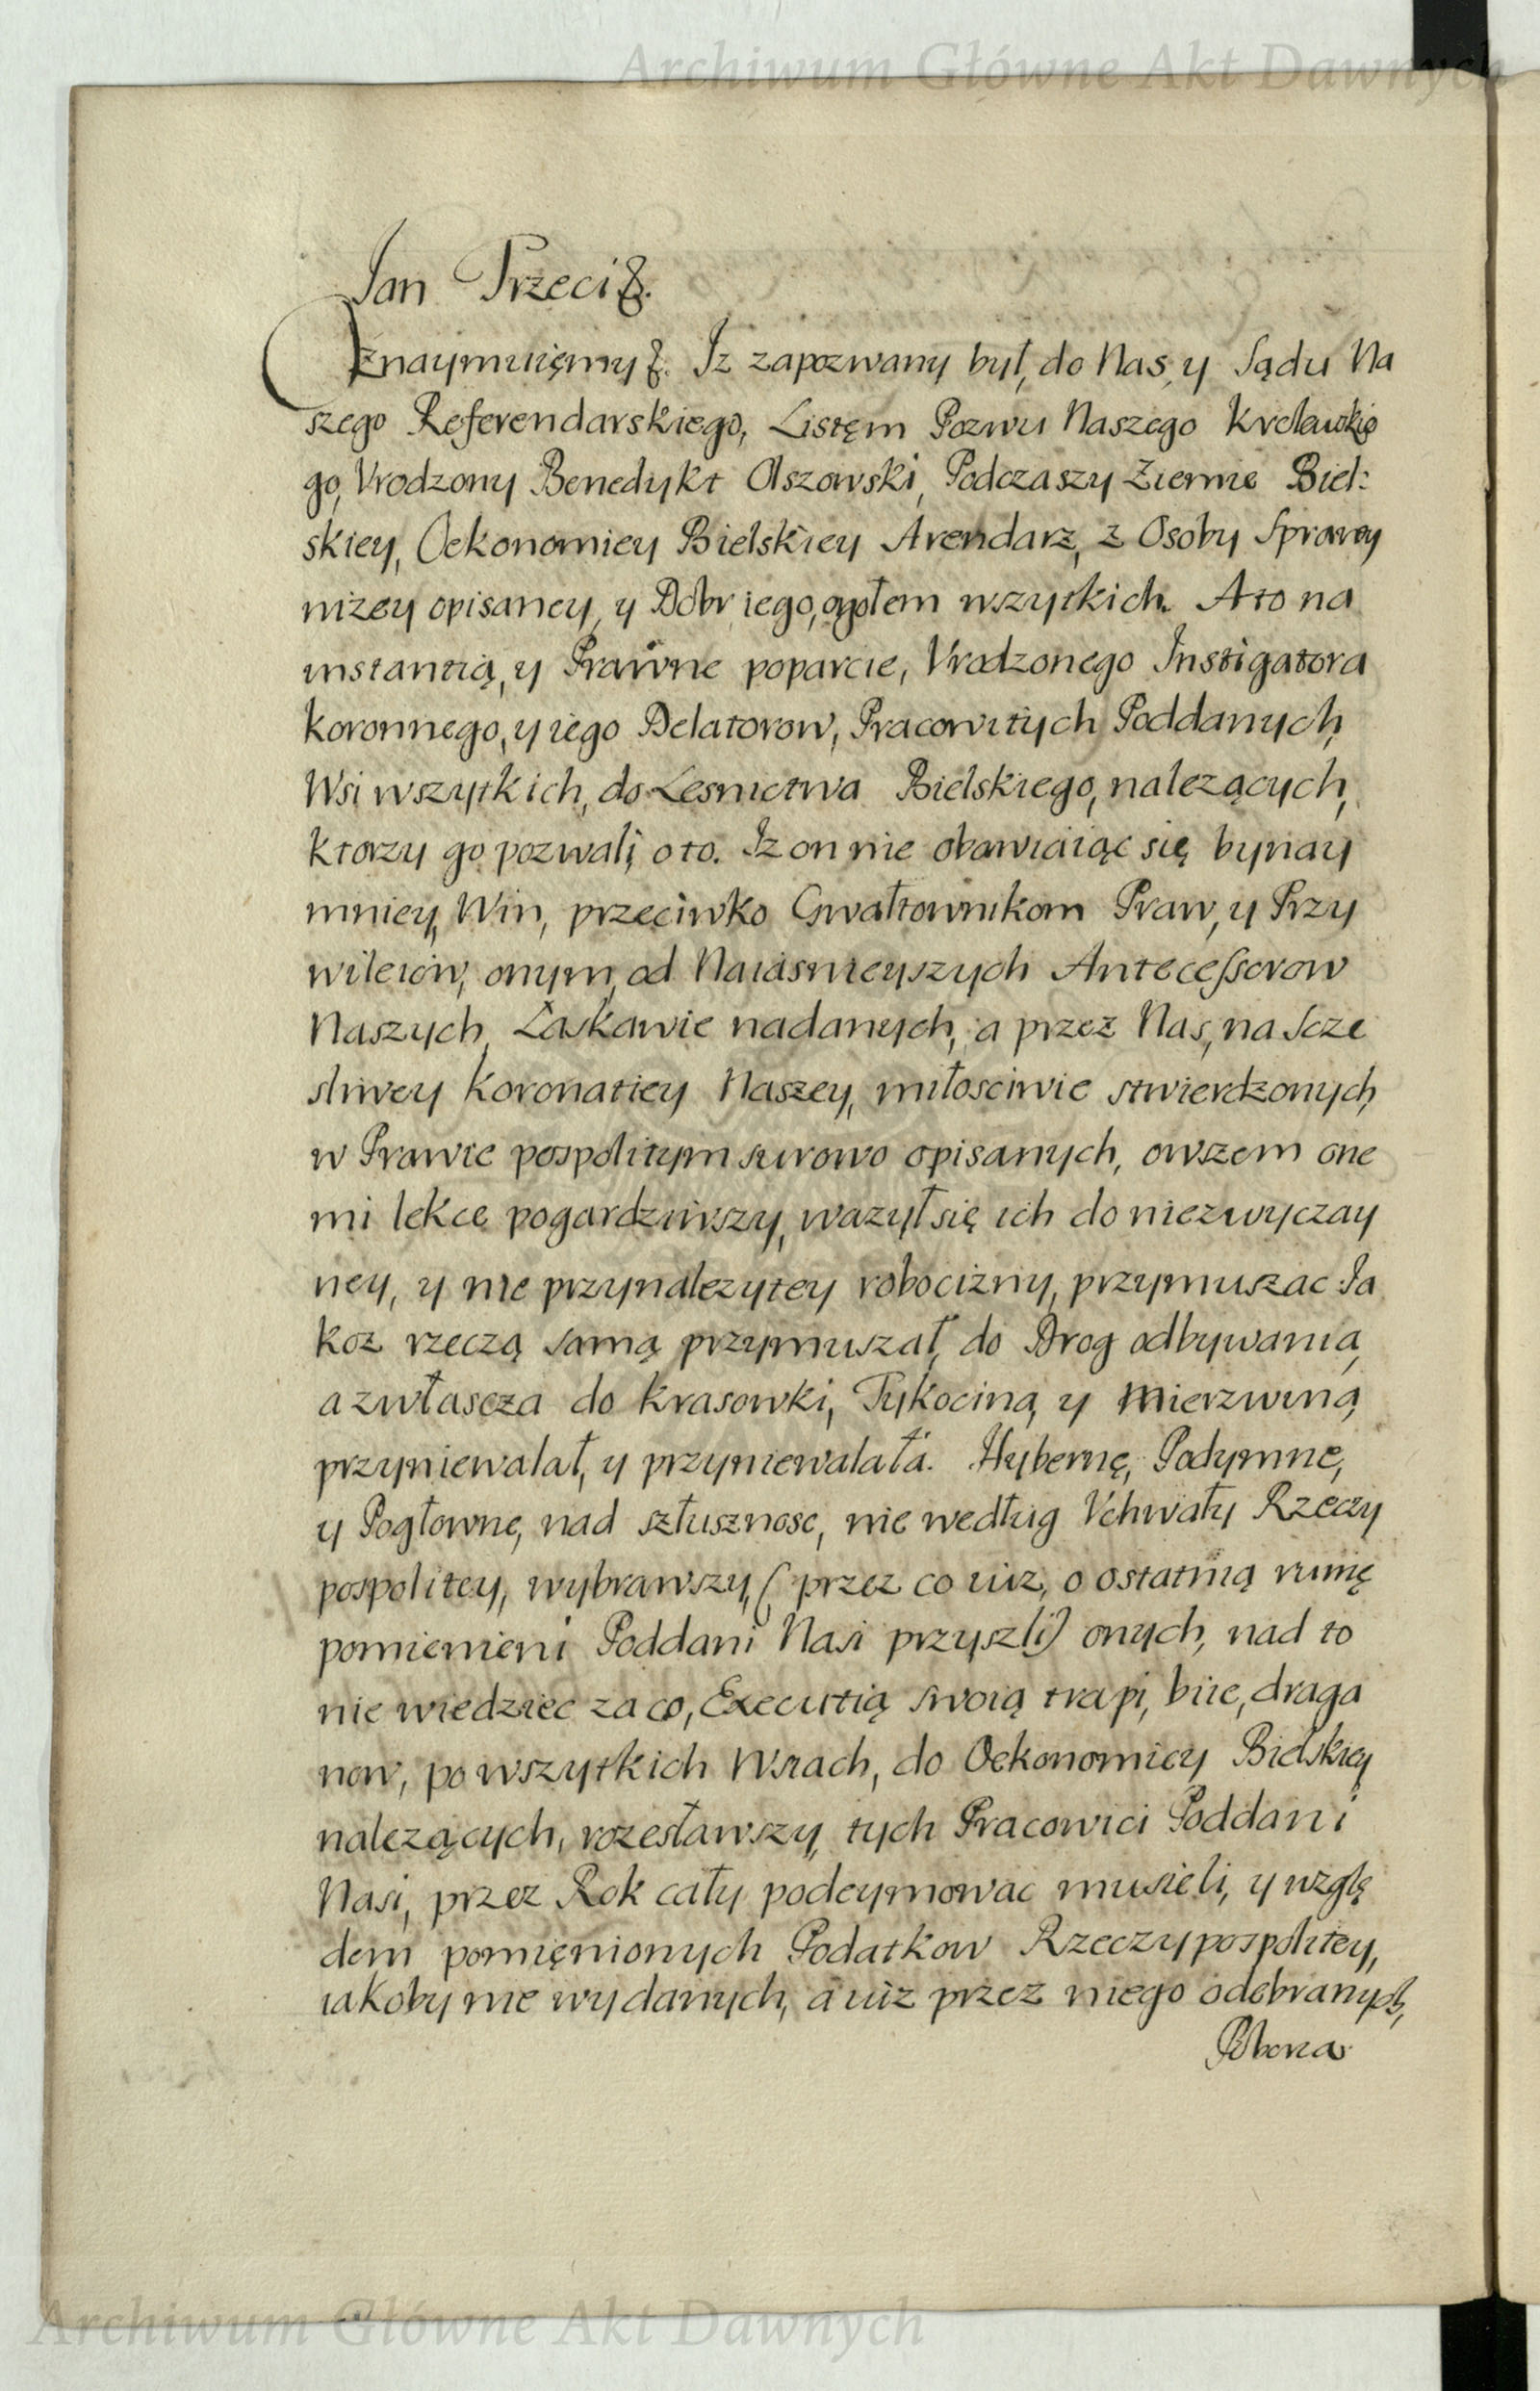 Archiwum Główne Akt Dawnych
Jan Trzeci &.
Oznaymuięmy &. Jz zapozwany był, do Nas, y Sądu Na
szego Referendarskiego, Listęm Pozwu Naszego Krolewskie
go, Vrodzony Benedykt Olszowski, Podczaszy Ziemie Biel:
skiey, Oekonomiey Bielskiey Arendarz, z Osoby Sprawy
nizey opisaney, y Dobr iego, ogołem wszytkich. A to na
instantią, y Prawne poparcie, Vrodzonego Instigatora
Koronnego, y iego Delatorow, Pracowitych Poddanych,
Wsi wszytkich, do Lesnictwa Bielskiego, nalezących,
ktorzy go pozwali, o to. Jz on nie obawiaiąc się bynay
mniey, Win, przeciwko Gwałtownikom Praw, y Przy
wileiow, onym, od Naiasnieyszych Antecessorow
Naszych, Łaskawie nadanych, a przez Nas, na Scze
sliwey Koronatiey Naszey, miłosciwie stwierdzonych,
w Prawie pospolitym surowo opisanych, owszem one
mi lekce pogardziwszy, wazył się ich do niezwyczay
ney, y nie przynalezytey robocizny, przymuszac Ja
koz rzeczą samą przymuszał, do Drog odbywania,
a zwłascza do Krasowki, Tykocina, y Mierzwina,
przyniewalał, y przyniewalała. Hybernę, Podymne,
y Pogłowne, nad szłusznosc, nie według Vchwały Rzeczy
pospolitey, wybrawszy, ( przez co iuz, o ostatnią ruinę
pomienieni Poddani Nasi przyszli) onych, nad to
nie wiedziec za co, Executią swoią trapi, biie, draga
now, po wszytkich Wsiach, do Oekonomiey Bielskiey
nalezących, rozesławszy, tych Pracowici Poddani
Nasi, przez Rok cały podeymowac musieli, y wzglę
dem pomięnionych Podatkow Rzeczypospolitey,
iakoby nie wydanych, a iuz przez niego odebranych,
Archiwum Główne Akt Dawnych